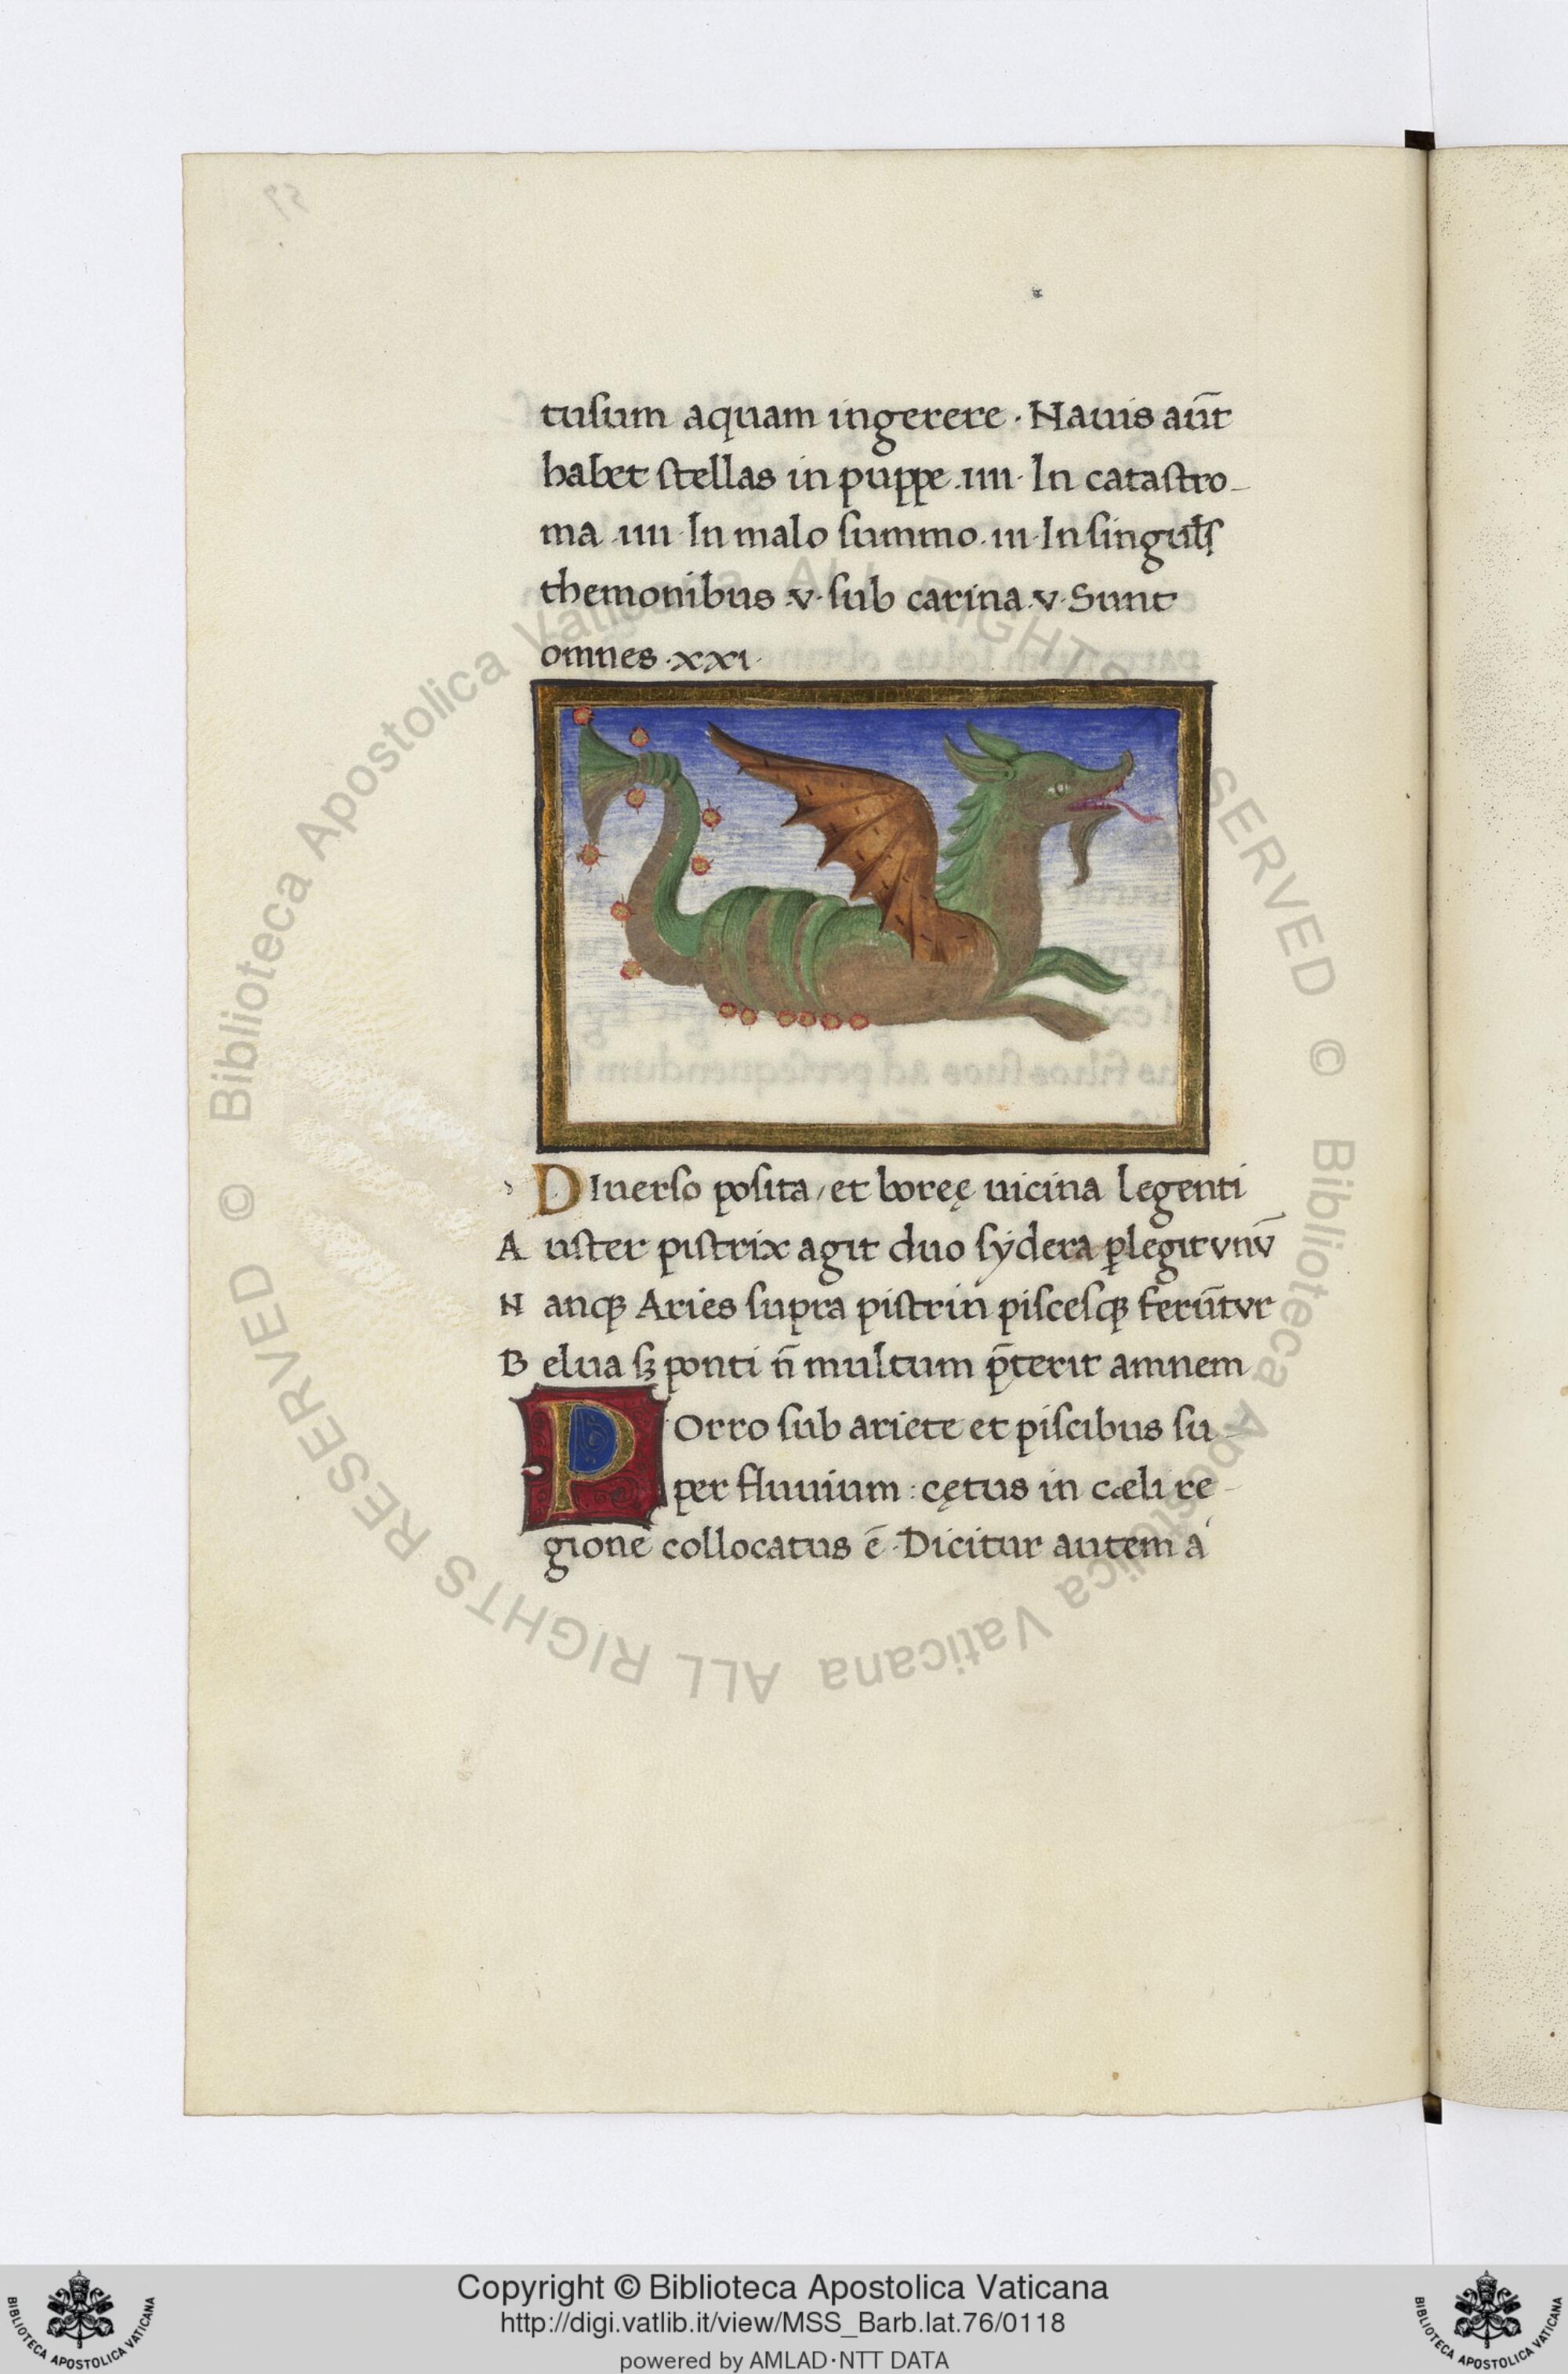 tusum aquam ingerere · Nauis aūt
habet stellas in puppe .iiii· In catastro-
ma .iiii· In malo summo .iii· In singul̄s
themonibus .v· sub carina .v· Sunt
omnes ·xxi·
DIuerso posita, et boreę uicina legenti
Auster pistrix agit duo sydera ꝑlegit vnū
Nanqꝫ Aries supra pistrin piscesqꝫ ferūtvr
Belua sꝫ ponti n̄ multum p̄terit amnem
POrro sub ariete et piscibus su-
per fluuium : cętus in cæli re-
gione collocatus ē · Dicitur autem a
© Biblioteca Apostolica Vaticana ALL RIGHTS RESERVED © Biblioteca Apostolica Vaticana ALL RIGHTS RESERVED
Copyright © Biblioteca Apostolica Vaticana
http://digi.vatlib.it/view/MSS_Barb.lat.76/0118
powered by AMLAD·NTT DATA
BIBLIOTECA APOSTOLICA VATICANA
BIBLIOTECA APOSTOLICA VATICANA